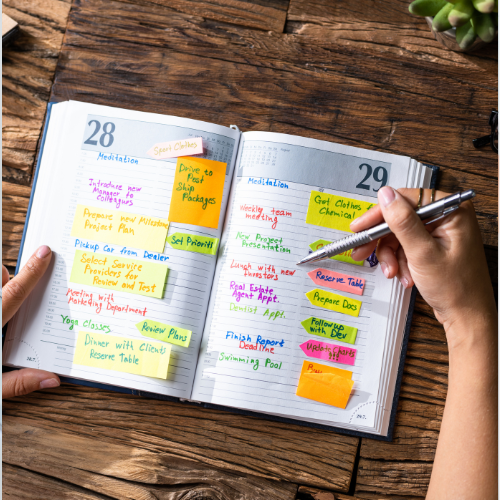 28
Sport Clothes
Meditation
Drive to
Post
Ship
Packages
Introduce new
Manager to
Colleagues
Prepare new Milestone
Project Plan
Set Priority
Pickup Car from Dealer
Select Service
Providers for
Review and Test
Meeting with
Marketing Department
Yoga Classes
Review Plans
Dinner with Clients
Reserve Table
29
Meditation
Got Clothes
Chemical
Weekly team
meeting
New Project
Presentation
Lunch with new
investors
Reserve Table
Real Estate
Agent Appt.
Prepare Docs
Dentist Appt.
Followup
with Dev
Finish Report
Deadline
Update Charts
Swimming Pool